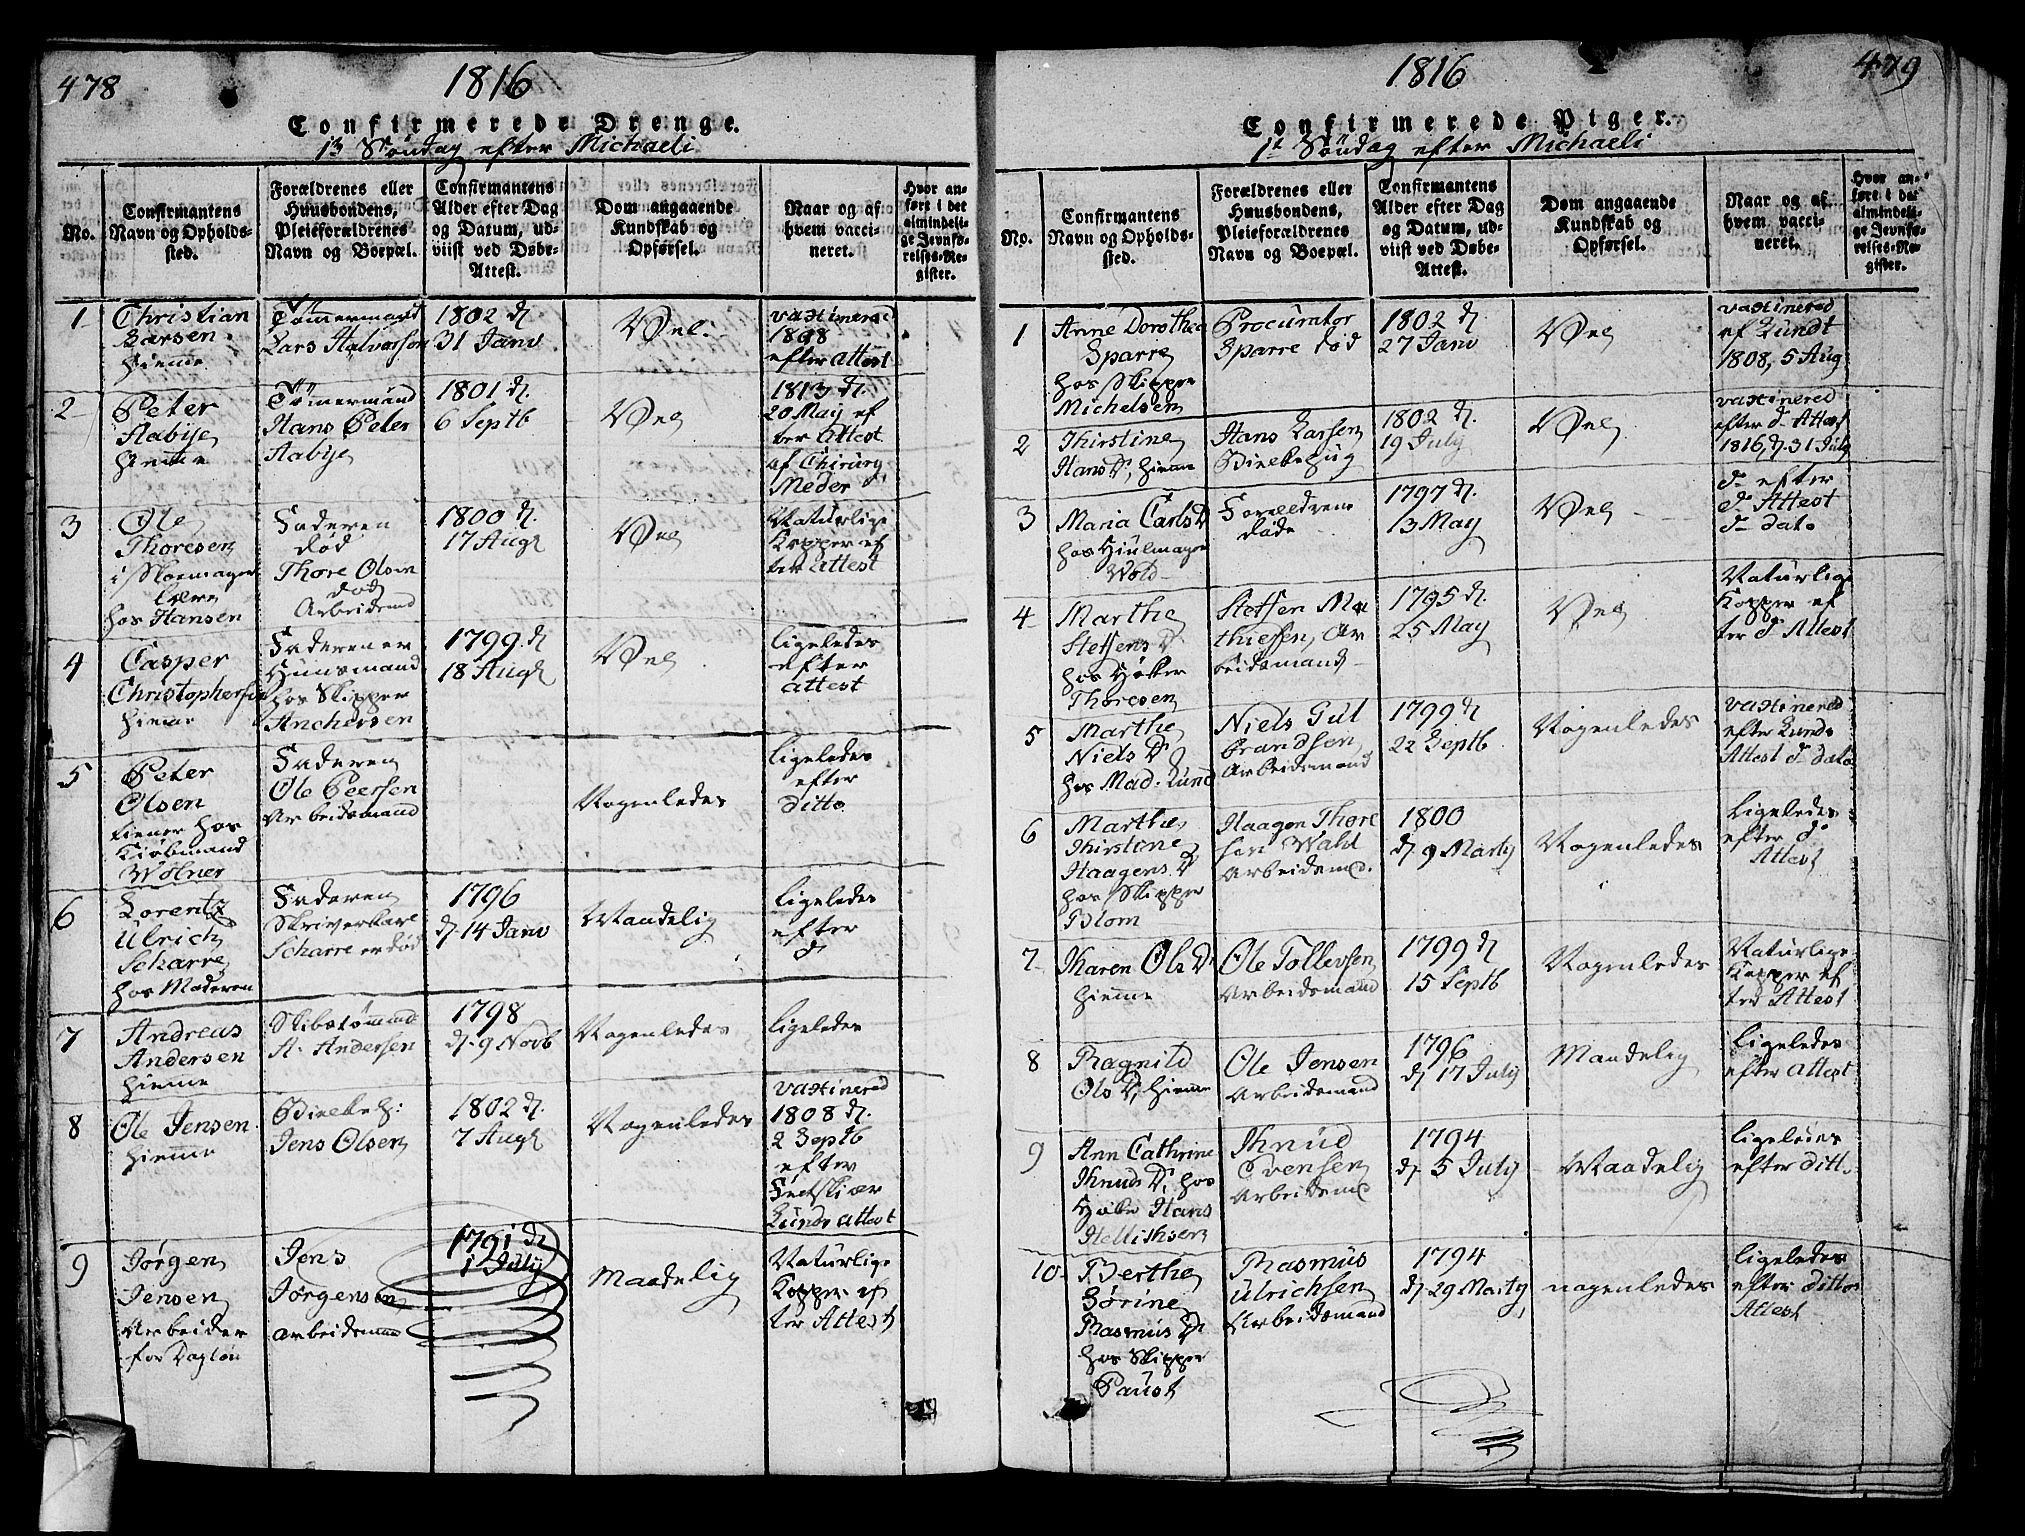 478
1816
Confirmerede Drenge.
1 Søndag efter Michaeli
No.
Confirmantens Navn og Opholds-sted.
Forældrenes eller Huusbondens, Pleieforældrenes Navn og Boepæl.
Confirmantens Alder efter Dag og Datum, ud-viist ved Døbe-Attest.
Dom angaaende Kundskab og Opførsel.
Naar og af hvem vacci-neret.
Hvor an-ført i det almindeli-ge Jevnfø-relses-Re-gister.
1
Christian
Larsen
hieme
Tømermand
Lars Halvorsen
1802 d.
31 Janv
Vel
vaxinered
1808
efter attest
2
Peter
Aabye
hieme
Tömermand
Hans Peter
Aabye
1801 d.
6 Septb
Vel
1813 d.
20 May ef
ter attest
af Chirurg
Meder
3
Ole
Thoresen
i Skoemager
lære
hos Hansen
Faderen
død
Thore Olsen
død
Arbeidsmd
1800 d.
17 Augt
Vel
Naturlige
Kopper ef
ter attest
4
Casper
Christophersen
hieme
Faderen er
Huusmand
hos Skipper
Anchersen
1799 d
18 Augt
Vel
ligeledes
efter
attest
5
Peter
Olsen
tiener hos
Kiøbmand
Wølner
Faderen
Ole Peersen
Arbeidsmand
Nogenledes
ligeledes
efter
ditto
6
Lorentz
Ulrich
Scharre
hos Moderen
Faderen
Skriverkarl
Scharre er død
1796
d. 14 Janv
Maadelig
ligeledes
efter
d
7
Andreas
Andersen
hieme
Skibstømmd
A. Andersen
1798
d. 9 Novb
Nogenledes
ligeledes
8
Ole Jensen
hieme
Bielkeh:
Jens Olsen
1802 d.
7 Augt
Nogenledes
vaxinered
1808 d.
2 Septb
efter
Lunds attest
9
Jørgen
Jensen
Arbeider
for Dagløn
Jens
Jørgensen
arbeidsman
1791 d
1 July
Maadelig
Naturlige
Kopper ef
ter Attest
1816
479
Confirmerede Piger.
1t Søndag efter Michaeli
No.
Confirmantens Navn og Opholds-sted.
Forældrenes eller Huusbondens, Pleieforældrenes Navn og Boepæl.
Confirmantens Alder efter Dag og Datum, ud-viist ved Døbe-Attest.
Dom angaaende Kundskab og Opførsel.
Naar og af hvem vacci-neret.
Hvor an-ført i det almindeli-ge Jevnfø-relses-Re-gister.
1
Anne Dorothea
Sparre
hos Skipper
Michelsen
Procurator
Sparre død
1802 d
27 Janv
Vel
vaxinered
af Lundt
1808, 5 Aug
2
Kirstine
Hans D, hieme
Hans Larsen
Bielkehug
1802 d.
19 July
Vel
vaxinered
efter d Attest
1816, d. 31 July
3
Maria Carls D
hos Hiulmager
Wold
Forældrene
døde
1797 d.
13 May
Vel
d efter
d Attest
d dato
4
Marthe
Steffens D
hos Høker
Thoresen
Steffen Ma
thiesen, Ar
beidsmand
1795 d
25 May
Vel
Naturlige
Kopper ef
ter d Attest
5
Marthe
Niels D
hos Mad. Lund
Niels Gul
brandsen
Arbeidsmand
1799 d
22 Septb
Nogenledes
vaxinered
efter Lunds
Attest d dato
6
Marthe
Kirstine
Haagens D
hos Skipper
Blom
Haagen Thore
sen Wahl
Arbeidsmd.
1800
d 9 Marty
Nogenledes
Ligeledes
efter d
Attest
7
Karen Ols D
hieme
Ole Tollevsen
Arbeidsmand
1799 d
15 Septb
Nogenledes
Naturlige
Kopper ef
ter Attest
8
Ragnild
Ols D, hieme
Ole Jensen
Arbeidsmand
1796
d 17 July
Maadelig
Ligeledes
efter attest
9
Ann Cathrine
Knuds D, hos
Høker Hans
Hellichsen
Knud
Evensen
Arbeidsmd
1794
d 5 July
Maadelig
ligeledes
efter ditto
10
Berthe
Sörine
Rasmus D
hos Skipper
Paust
Rasmus
Ulrichsen
Arbeidsmand
1794
d 29 Marty
nogenledes
ligeledes
efter ditto
Attest